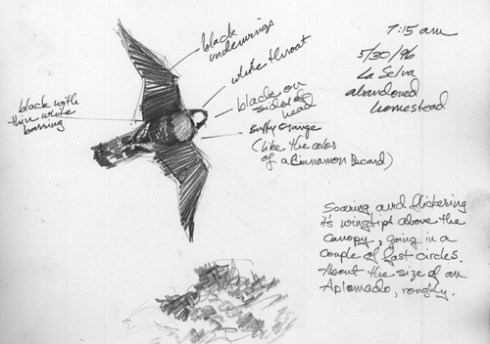 black
underwings
white throat
black on
sides of
head
black with
thin white
barring
Buffy orange
(like the color
of a Cinnamon Becard)
7:15 am
5/30/96
La Selva
abandoned
homestead
Soaring and flickering
it's wingtips above the
canopy, going in a
couple of fast circles.
About the size of an
Aplomado, roughly.